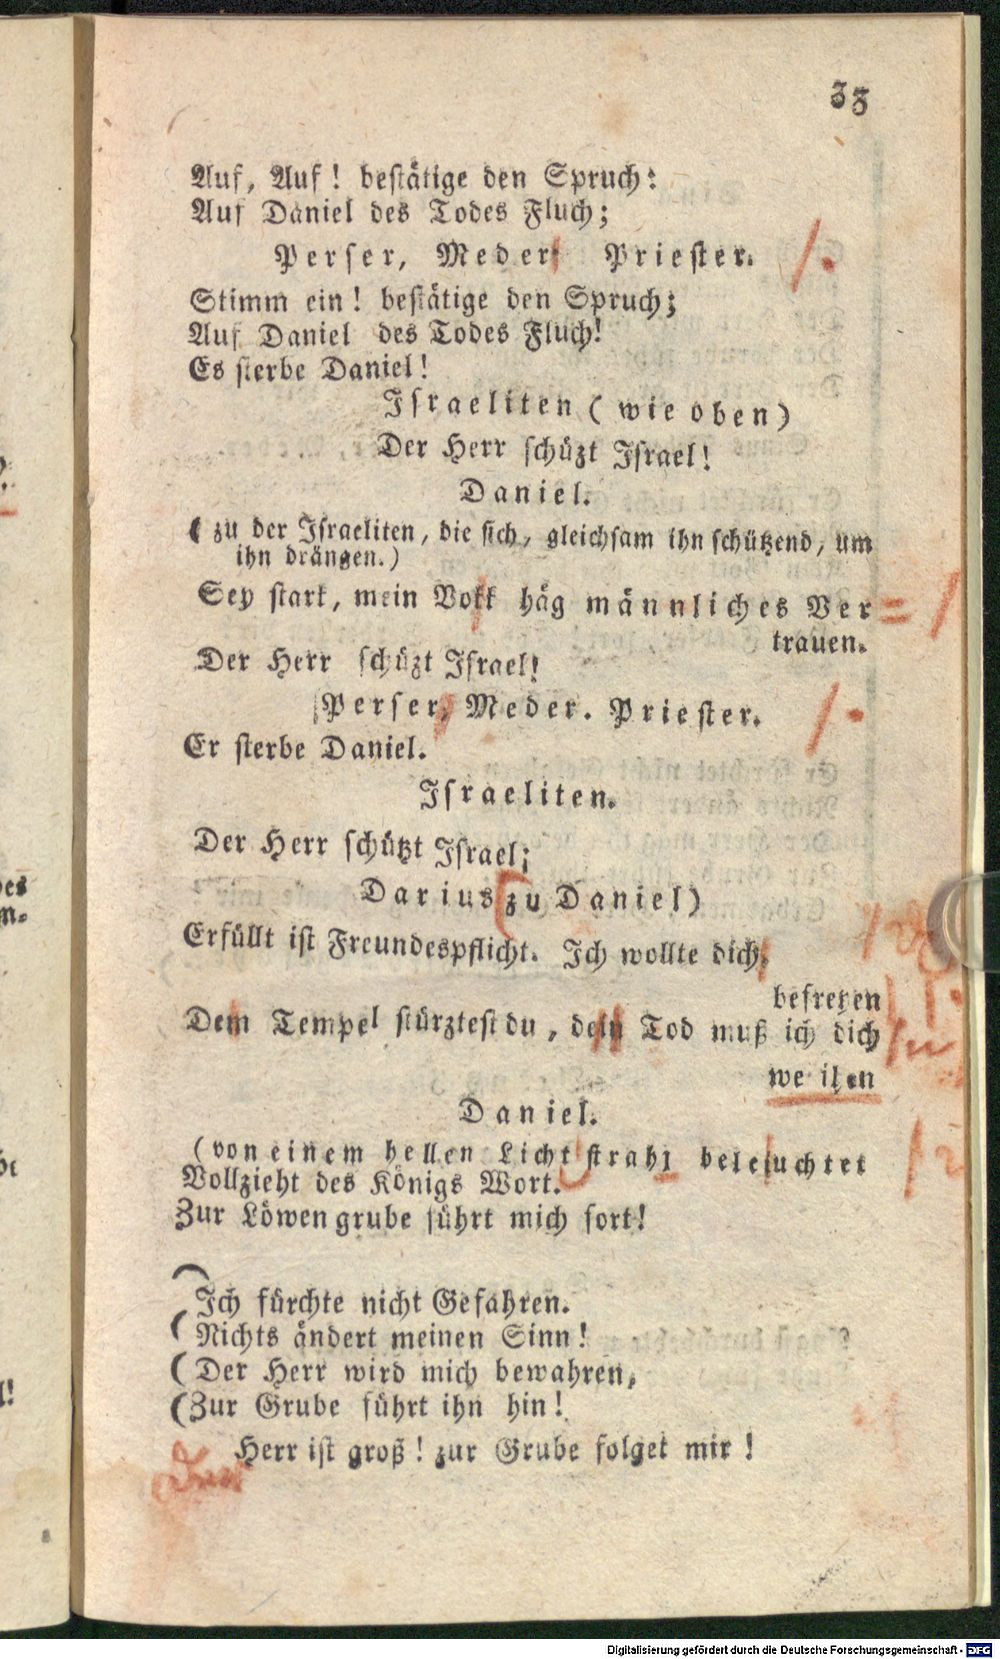 33
Auf, Auf! bestätige den Spruch:
Auf Daniel des Todes Fluch;
Perser, Meder Priester.
Stimm ein! bestätige den Spruch;
Auf Daniel des Todes Fluch!
Es sterbe Daniel!
Israeliten (wie oben)
Der Herr schüzt Israel!
Daniel.
(zu der Israeliten, die sich, gleichsam ihn schützend, um
ihn drängen.)
Sey stark, mein Volk häg männliches Ver=
trauen.
Der Herr schüzt Israel!
Perser, Meder. Priester.
Er sterbe Daniel.
Israeliten.
Der Herr schützt Israel;
Darius zu Daniel)
Erfüllt ist Freundespflicht. Ich wollte dich,
befreyen
Dem Tempel stürztest du, dein Tod muß ich dich
weihen
Daniel.
(von einem hellen Lichtstrahl beleuchtet
Vollzieht des Königs Wort.
Zur Löwengrube führt mich fort!
(Ich fürchte nicht Gefahren.
(Nichts ändert meinen Sinn!
(Der Herr wird mich bewahren,
(Zur Grube führt ihn hin!
Herr ist groß! zur Grube folget mir!
des
m=
l!
Digitalisierung gefördert durch die Deutsche Forschungsgemeinschaft - DFG